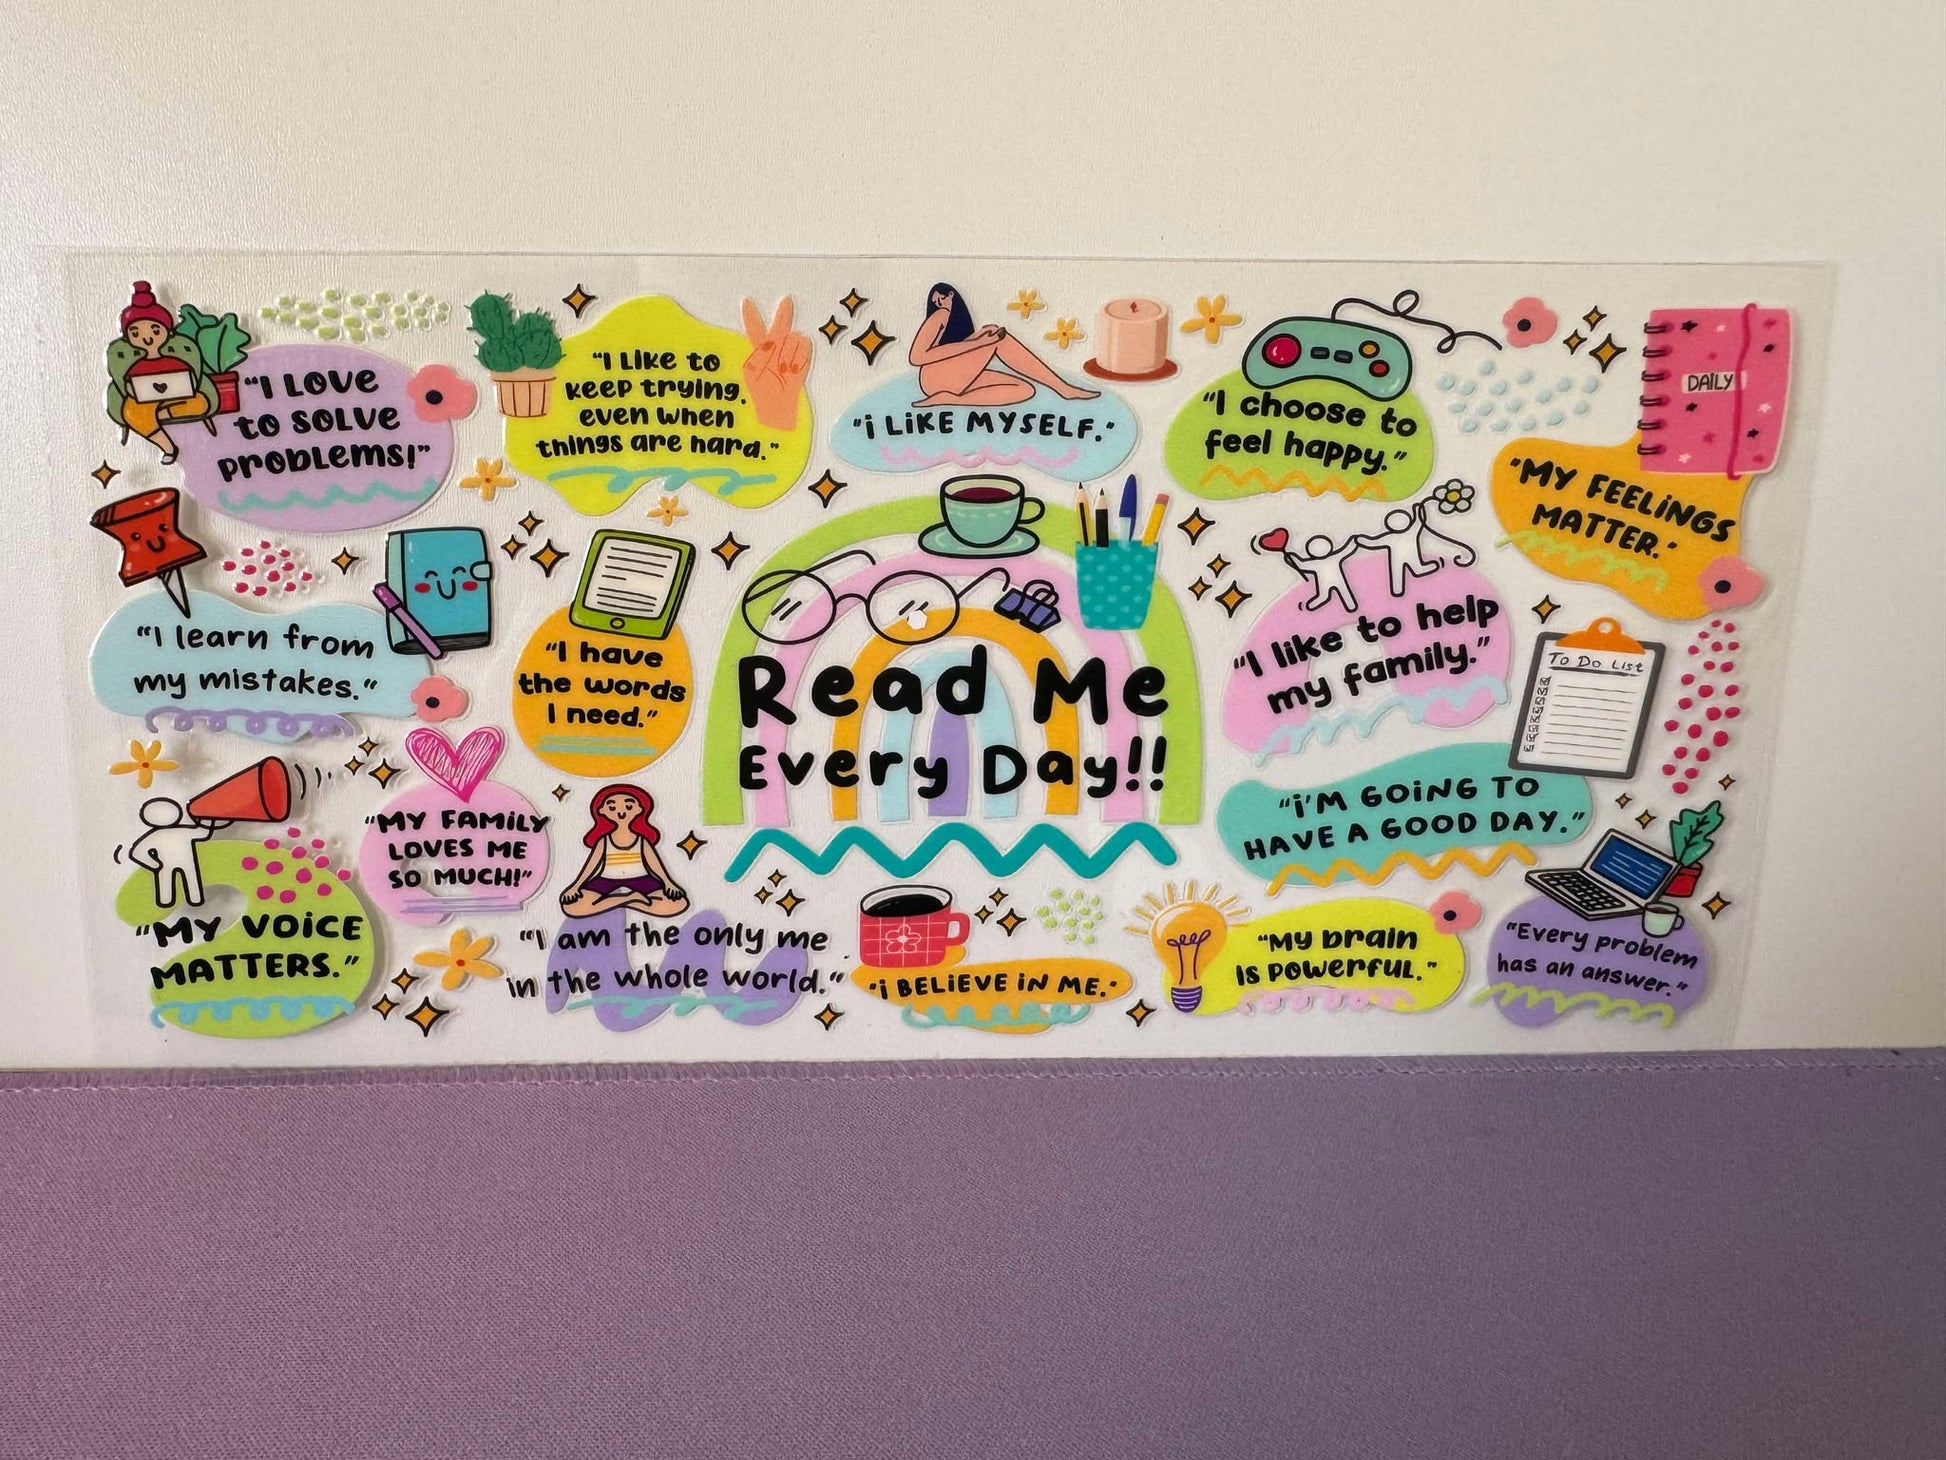 "I LOVE
to SOLVE
problems!"
"I Like to
keep trying,
even when
things are hard."
"i LiKE MYSELF."
"I choose to
feel happy."
DAILY
"MY FEELiNGS
MATTER."
"I learn from
my mistakes."
"I have
the words
I need."
Read Me
Every Day!!
"I like to help
my family."
To Do List
"MY FAMiLY
LOVES ME
SO MUCH!"
"i'M GOiNG TO
HAVE A GOOD DAY."
"MY VOiCE
MATTERS."
"I am the only me
in the whole world."
"i BELiEVE iN ME."
"My brain
is powerful."
"Every problem
has an answer."